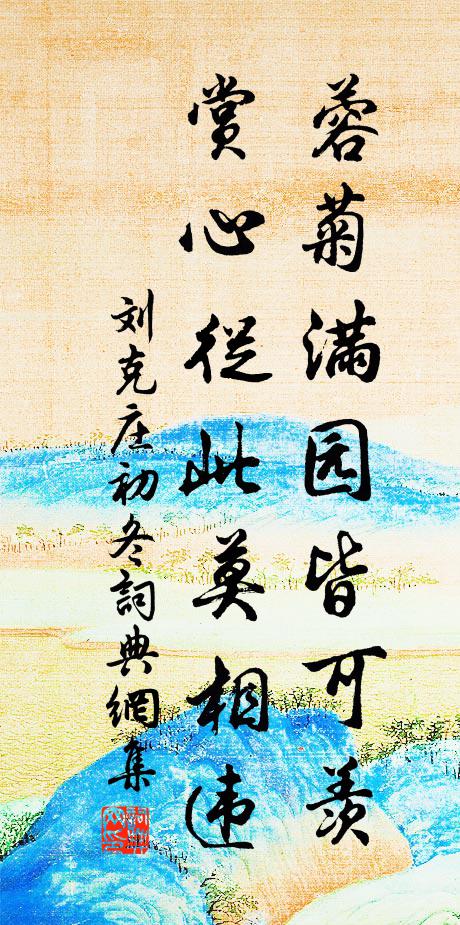 蓉菊满园皆可羡
赏心從此莫相违
刘克庄初冬詞典網集